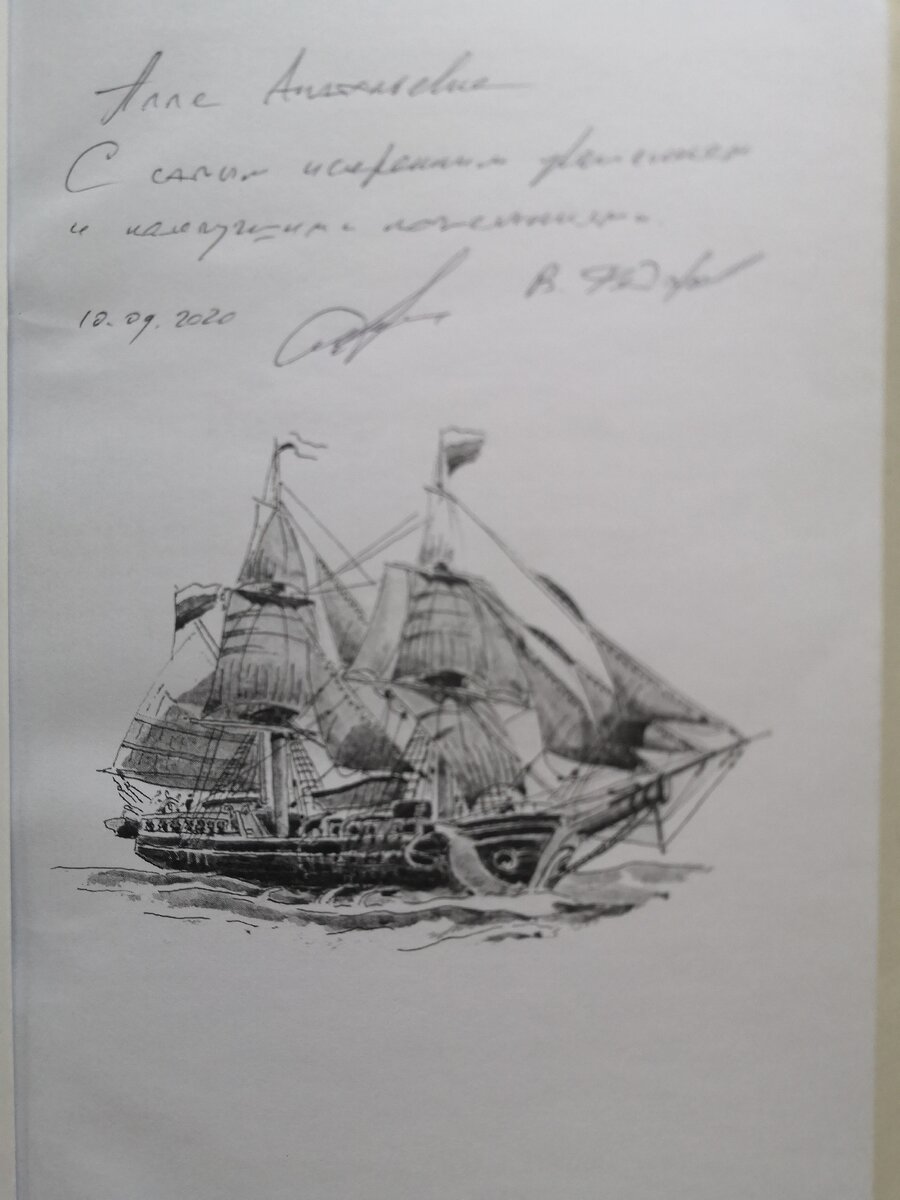 Алле Анатольевне
С самым искренним уважением
и наилучшими пожеланиями.
В. Федоров
10.09.2020